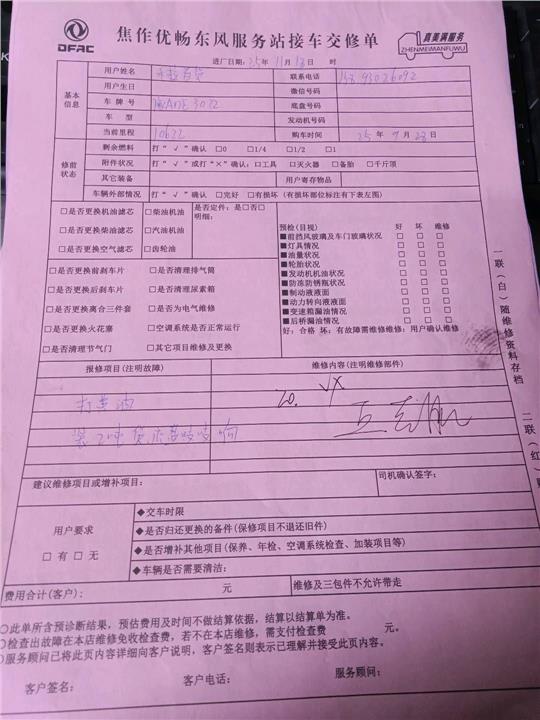 DFAC
焦作优畅东风服务站接车交修单
真美满服务
ZHENMEIMANFUWU
进厂日期：25年11月18日 时
基本信息
用户姓名 联系电话
用户生日 微信号码
车牌号 底盘号码
车型 发动机号码
当前里程 10622 购车时间 25年9月28日
修前状态
剩余燃料 打“√”确认 □0 □1/4 □1/2 □1
附件状况 打“√”或打“×”确认：□工具 □灭火器 □备胎 □千斤顶
其它装备 用户寄存物品
车辆外部情况 打“√”确认 □完好 □有损坏（有损坏部位标注有下表左图）
□是否更换机油滤芯 □柴油机油 是否定件：是□否□
明细：
□是否更换柴油滤芯 □汽油机油
□是否更换空气滤芯 □齿轮油
□是否更换前刹车片 □是否清理排气筒
□是否更换后刹车片 □是否清理尿素箱
□是否更换离合三件套 □是否为电气维修
□是否更换火花塞 □空调系统是否正常运行
□是否清理节气门 □其它项目维修及更换
预检（目视） 好 坏 维修
■前挡风玻璃及车门玻璃状况 □ □ □
■灯具情况 □ □ □
■油量状况 □ □ □
■轮胎状况 □ □ □
■发动机机油状况 □ □ □
■防冻防锈瓶状况 □ □ □
■制动液液面 □ □ □
■动力转向液液面 □ □ □
■变速箱漏油情况 □ □ □
■后桥漏油情况 □ □ □
好：合格 坏：有故障需维修维修：用户确认维修
报修项目(注明故障) 维修内容(注明维修部件)
打黄油
装2吨货
响
建议维修项目或增补项目： 司机确认签字：
用户要求
□有 □无
◆交车时限
◆是否归还更换的备件(保修项目不退还旧件)
◆是否增补其他项目(保养、年检、空调系统检查、加装项目等)
◆车辆是否需要清洁：
费用合计(客户)： 元 维修及三包件不允许带走
○此单所含预诊断结果，预估费用及时间不做结算依据，结算以结算单为准。
○检查出故障在本店维修免收检查费，若不在本店维修，需支付检查费 元。
○服务顾问已将此页内容详细向客户说明，客户签名则表示已理解并接受此页内容。
客户签名： 客户电话： 服务顾问：
一联（白）随维修资料存档
二联（红）